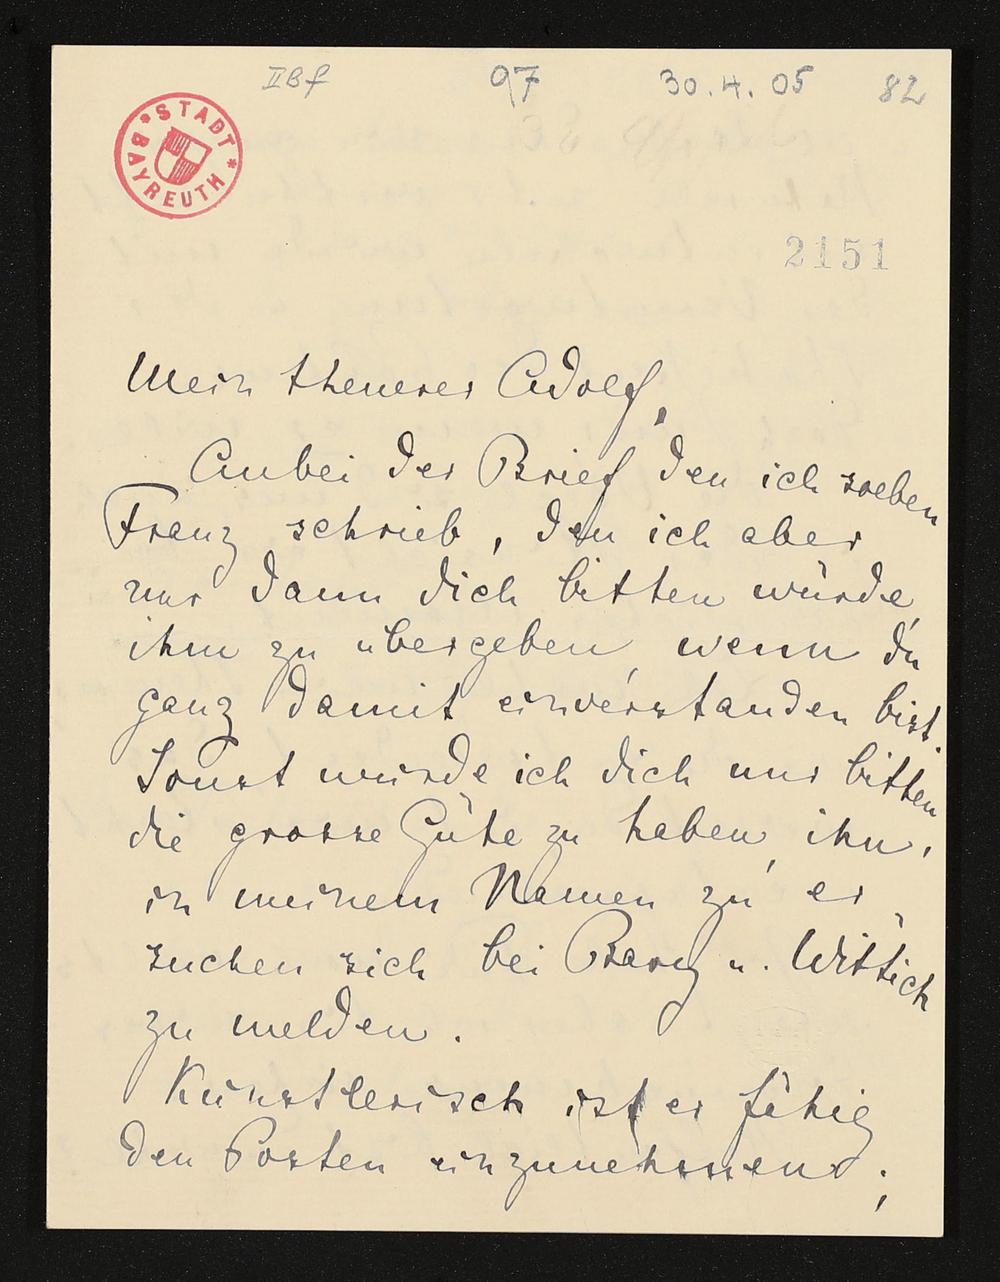 IIBf 97 30.4.05 82
STADT BAYREUTH
2151
Mein theurer Adolf,
Anbei der Brief den ich soeben
Franz schrieb, den ich aber
nur dann dich bitten würde,
ihm zu übergeben, wenn du
ganz damit einverstanden bist.
Sonst würde ich dich nur bitten
die grosse Güte zu haben, ihn,
in meinem Namen zu er
suchen sich bei u. Wittich
zu melden.
Künstlerisch ist er fähig
den Posten einzunehmen;